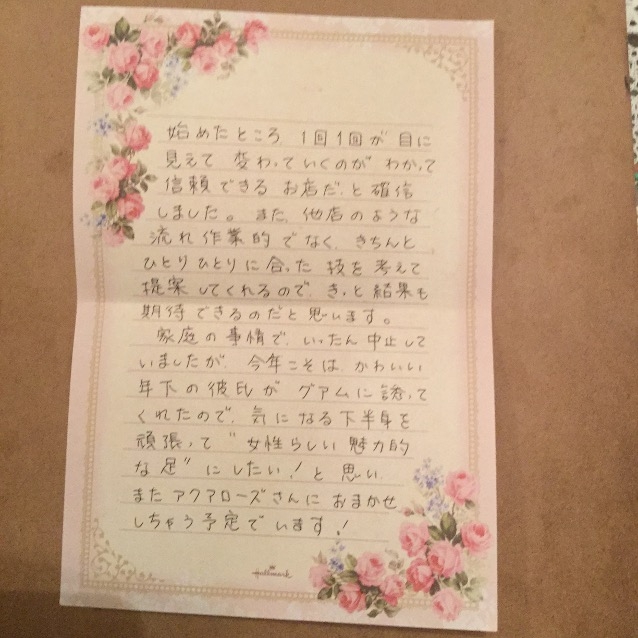 始めたところ、1回1回が目に
見えて変わっていくのがわかって
信頼できるお店だ、と確信
しました。また、他店のような
流れ作業的でなく、きちんと
ひとりひとりに合った技を考えて
提案してくれるので、きっと結果も
期待できるのだと思います。
家庭の事情で、いったん中止して
いましたが、今年こそは、かわいい
年下の彼氏がグアムに誘って
くれたので、気になる下半身を
頑張って"女性らしい魅力的
な足"にしたい!と思い、
またアクアローズさんにおまかせ
しちゃう予定でいます!
Hallmark